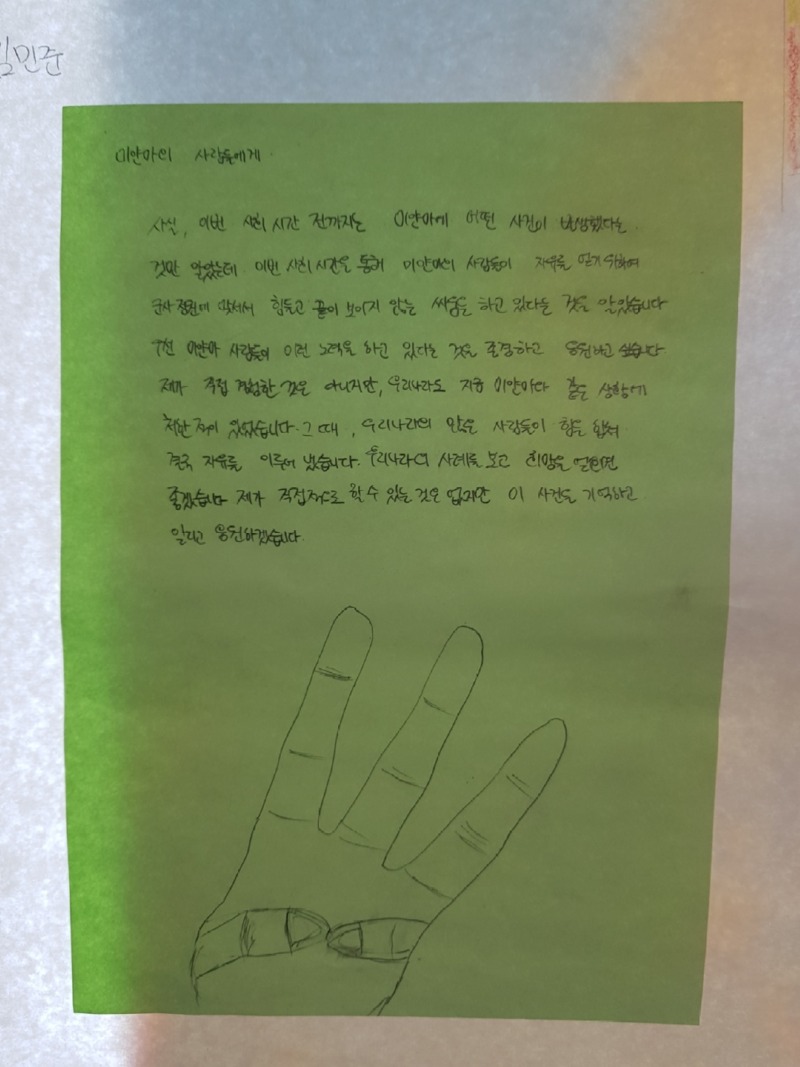 김민준
미얀마의 사람들에게
사실, 이번 사회 시간 전까지는 미얀마에 어떤 사건이 발생했다는
것만 알았는데 이번 사회시간을 통해 미얀마의 사람들이 자유를 얻기 위하여
군사정권에 맞서서 힘들고 끝이 보이지 않는 싸움을 하고 있다는 것을 알았습니다
우선 미얀마 사람들이 이런 노력을 하고 있다는 것을 존경하고 응원하고 싶습니다
제가 직접 경험한 것은 아니지만, 우리나라도 지금 미얀마와 같은 상황에
처한 적이 있었습니다. 그 때, 우리나라의 많은 사람들이 힘을 합쳐
결국 자유를 이루어 냈습니다. 우리나라의 사례를 보고 희망을 얻으면
좋겠습니다 제가 직접적으로 할 수 있는 것은 없지만 이 사건을 기억하고
알리고 응원하겠습니다.